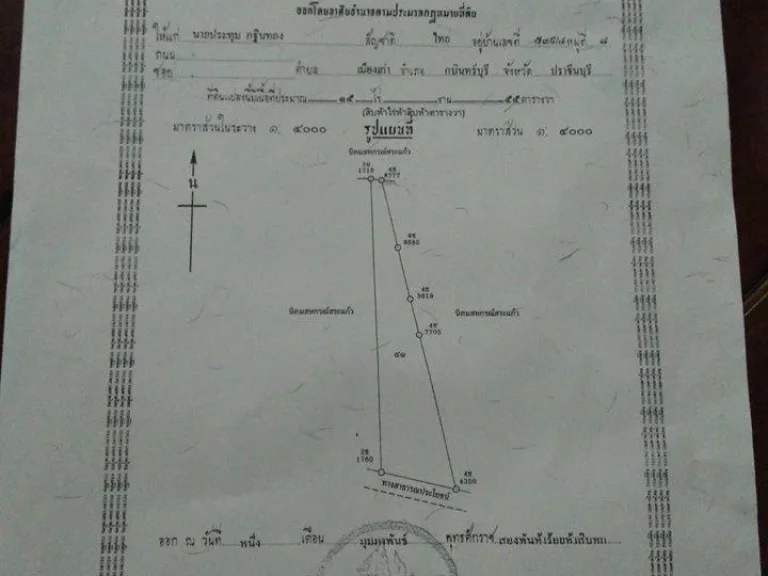 ออกโดยอาศัยอำนาจตามประมวลกฎหมายที่ดิน
ให้แก่ นายประทุม กฐินทอง สัญชาติ ไทย อยู่บ้านเลขที่ ๕๓๙/๔ หมู่ที่ ๘
ถนน
ซอย ตำบล เมืองเก่า อำเภอ กบินทร์บุรี จังหวัด ปราจีนบุรี
ที่ดินแปลงนี้มีเนื้อที่ประมาณ ๑๕ ไร่ งาน ๕๕ ตารางวา
(สิบห้าไร่ห้าสิบห้าตารางวา)
มาตราส่วนในระวาง ๑: ๔๐๐๐ รูปแผนที่ มาตราส่วน ๑: ๔๐๐๐
นิคมสหกรณ์สระแก้ว
1715
4ช
6777
น
4ช
4ช
3619
นิคมสหกรณ์สระแก้ว
นิคมสหกรณ์สระแก้ว
4ช
7705
๔๑
1760
4ช
4300
ทางสาธารณประโยชน์
ออก ณ วันที่ หนึ่ง เดือน กุมภาพันธ์ พุทธศักราช สองพันห้าร้อยห้าสิบหก